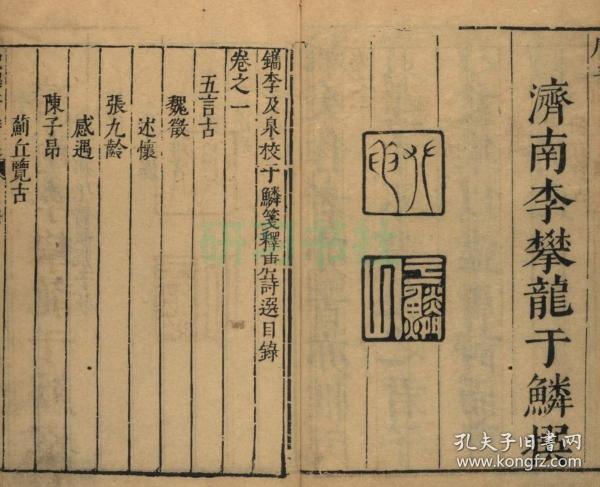 濟南李攀龍于鱗撰
鐫李及泉校于鱗箋釋唐詩選目錄
卷之一
五言古
魏徵
述懷
張九齡
感遇
陳子昂
薊丘覽古
孔夫子旧书网
www.kongfz.com